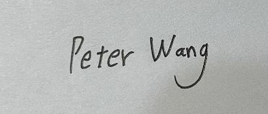 Peter Wang